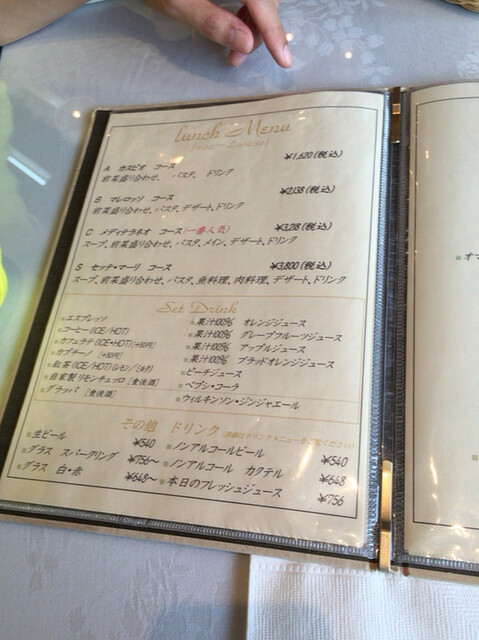 Lunch Menu
A カスピオ コース ¥1,620(税込)
前菜盛り合わせ、 パスタ、 ドリンク
B マレロッソ コース ¥2,138(税込)
前菜盛り合わせ、パスタ、デザート、ドリンク
C メディテラネオ コース(一番人気) ¥3,218(税込)
スープ、前菜盛り合わせ、パスタ、メイン、デザート、ドリンク
S セッテ・マーリ コース ¥3,800(税込)
スープ、前菜盛り合わせ、パスタ、魚料理、肉料理、デザート、ドリンク
Set Drink
エスプレッソ
コーヒー(ICE/HOT)
カフェラテ(ICE/HOT)(+50円)
カプチーノ (+50円)
紅茶(ICE/HOT)(レモン/ミルク)
自家製リモンチェッロ[食後酒]
グラッパ [食後酒]
果汁100% オレンジジュース
果汁100% グレープフルーツジュース
果汁100% アップルジュース
果汁100% ブラッドオレンジジュース
ピーチジュース
ペプシ・コーラ
ウィルキンソン・ジンジャエール
その他 ドリンク (詳細はドリンクメニューをご覧ください)
生ビール ¥540
グラス スパークリング ¥756～
グラス 白・赤 ¥648～
ノンアルコールビール ¥540
ノンアルコール カクテル ¥648
本日のフレッシュジュース ¥756
オマ